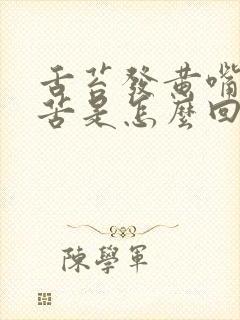 舌苔發黃嘴
苦是怎麼回
陳學軍